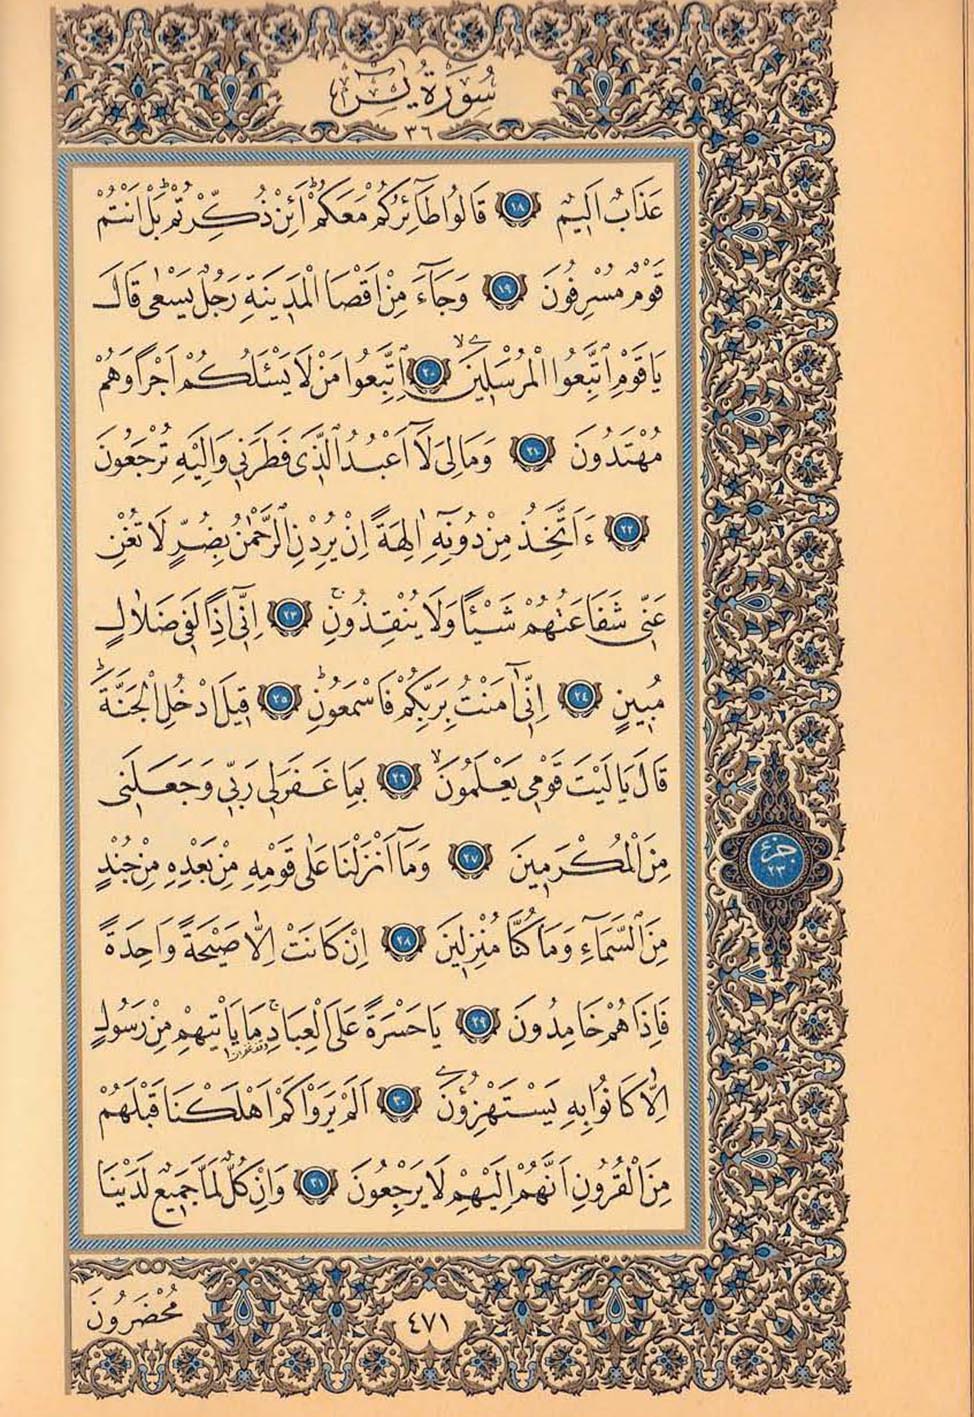 سُورَةُ يٰسٓ
٣٦
عَذَابٌ اَلٖيمٌ ١٨ قَالُوا طَٓائِرُكُمْ مَعَكُمْؕ اَئِنْ ذُكِّرْتُمْؕ بَلْ اَنْتُمْ
قَوْمٌ مُسْرِفُونَ ١٩ وَجَٓاءَ مِنْ اَقْصَا الْمَدٖينَةِ رَجُلٌ يَسْعٰى قَالَ
يَا قَوْمِ اتَّبِعُوا الْمُرْسَلٖينَۙ ٢٠ اِتَّبِعُوا مَنْ لَا يَسْـَٔلُكُمْ اَجْرًا وَهُمْ
مُهْتَدُونَ ٢١ وَمَا لِىَ لَٓا اَعْبُدُ الَّذٖى فَطَرَنٖى وَاِلَيْهِ تُرْجَعُونَ
٢٢ ءَاَتَّخِذُ مِنْ دُونِهٖٓ اٰلِهَةً اِنْ يُرِدْنِ الرَّحْمٰنُ بِضُرٍّ لَا تُغْنِ
عَنّٖى شَفَاعَتُهُمْ شَيْـًٔا وَلَا يُنْقِذُونِۚ ٢٣ اِنّٖٓى اِذًا لَفٖى ضَلَالٍ
مُبٖينٍ ٢٤ اِنّٖٓى اٰمَنْتُ بِرَبِّكُمْ فَاسْمَعُونِؕ ٢٥ قٖيلَ ادْخُلِ الْجَنَّةَؕ
قَالَ يَا لَيْتَ قَوْمٖى يَعْلَمُونَۙ ٢٦ بِمَا غَفَرَ لٖى رَبّٖى وَجَعَلَنٖى
مِنَ الْمُكْرَمٖينَ ٢٧ وَمَٓا اَنْزَلْنَا عَلٰى قَوْمِهٖ مِنْ بَعْدِهٖ مِنْ جُنْدٍ
مِنَ السَّمَٓاءِ وَمَا كُنَّا مُنْزِلٖينَ ٢٨ اِنْ كَانَتْ اِلَّا صَيْحَةً وَاحِدَةً
فَاِذَا هُمْ خَامِدُونَ ٢٩ يَا حَسْرَةً عَلَى الْعِبَادِۚ مَا يَاْتٖيهِمْ مِنْ رَسُولٍ
اِلَّا كَانُوا بِهٖ يَسْتَهْزِؤُ۫نَ ٣٠ اَلَمْ يَرَوْا كَمْ اَهْلَكْنَا قَبْلَهُمْ
مِنَ الْقُرُونِ اَنَّهُمْ اِلَيْهِمْ لَا يَرْجِعُونَ ٣١ وَاِنْ كُلٌّ لَمَّا جَمٖيعٌ لَدَيْنَا
جزء
٢٣
مُحْضَرُونَ
٤٧١